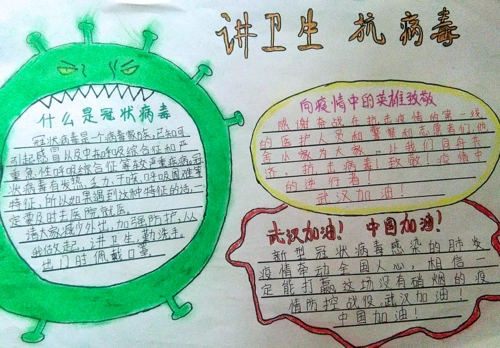 讲卫生 抗病毒
什么是冠状病毒
冠状病毒是一个病毒家族,已知可
引起感冒以及中东呼吸综合征和严
重急性呼吸综合征等较严重疾病,冠
状病毒有发热、乏力、干咳、呼吸困难等
特征,所以如果遇到这种特征的话,一
定要及时去医院就医。
请大家减少外出,加强防护,从
我做起,讲卫生,勤洗手,
出门时佩戴口罩。
向疫情中的英雄致敬
感谢奋战在抗击疫情的第一线
的医护人员和警察和志愿者们,他
舍小家为大家,让我们日舟共
济,抗击病毒!致敬!疫情中
的逆行者!
武汉加油!
武汉加油! 中国加油!
新型冠状病毒感染的肺炎
疫情牵动全国人心,相信一
定能打赢这场没有硝烟的疫
情防控战役,武汉加油!
中国加油!